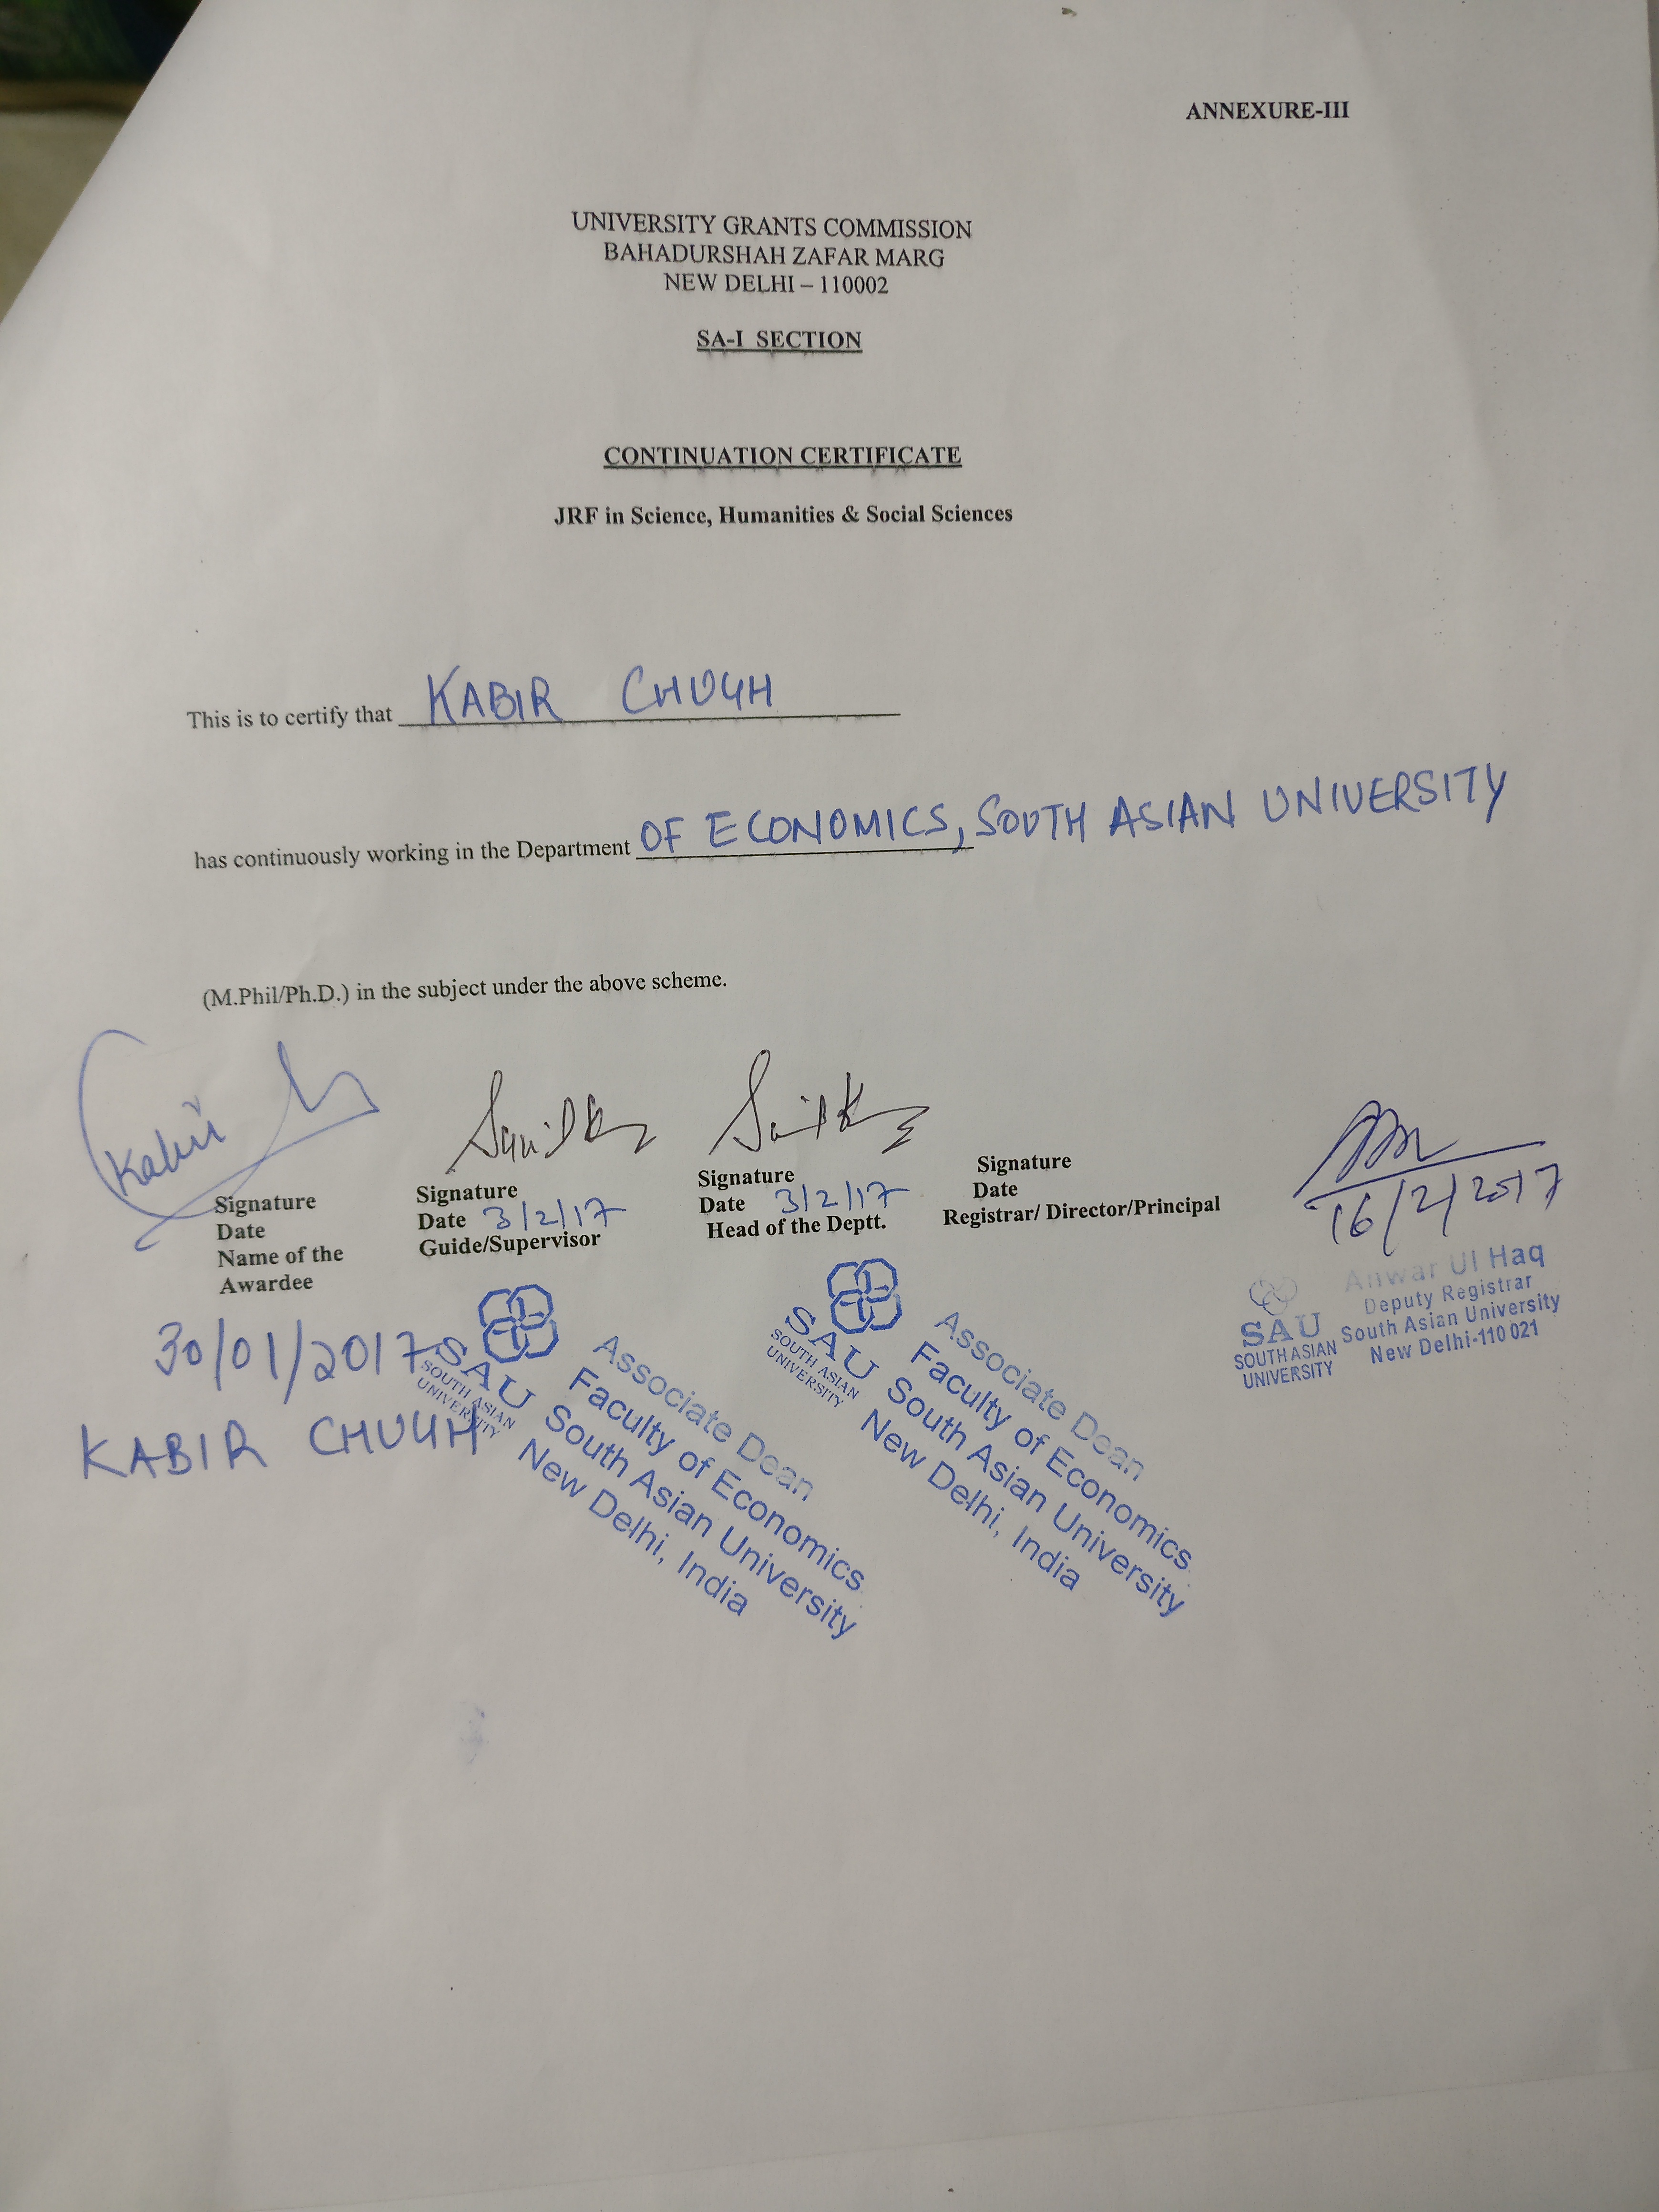 ANNEXURE-III
UNIVERSITY GRANTS COMMISSION
BAHADURSHAH ZAFAR MARG
NEW DELHI – 110002
SA-I SECTION
CONTINUATION CERTIFICATE
JRF in Science, Humanities & Social Sciences
This is to certify that KABIR CHUGH
has continuously working in the Department OF ECONOMICS, SOUTH ASIAN UNIVERSITY
(M.Phil/Ph.D.) in the subject under the above scheme.
Kabir
Signature
Date
Name of the
Awardee
30/01/2017
KABIR CHUGH
Sunil K
Signature
Date 3/2/17
Guide/Supervisor
SAU
SOUTH ASIAN
UNIVERSITY
Associate Dean
Faculty of Economics
South Asian University
New Delhi, India
Sunil K
Signature
Date 3/2/17
Head of the Deptt.
SAU
SOUTH ASIAN
UNIVERSITY
Associate Dean
Faculty of Economics
South Asian University
New Delhi, India
Signature
Date
Registrar/ Director/Principal
16/2/2017
SAU
SOUTH ASIAN
UNIVERSITY
Anwar Ul Haq
Deputy Registrar
South Asian University
New Delhi-110 021